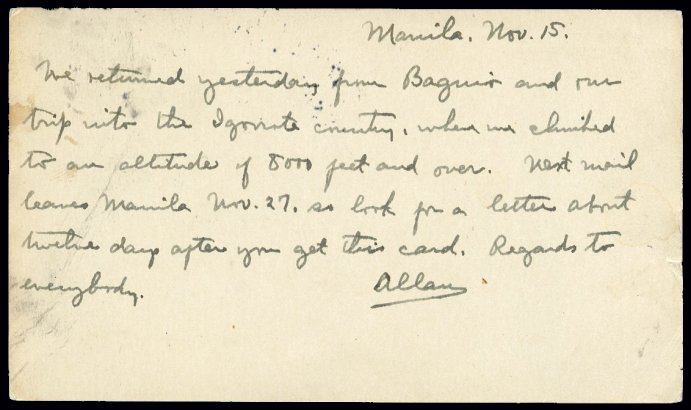 Manila, Nov. 15.
We returned yesterday from Baguio and our
trip into the Igorrote country, where we climbed
to an altitude of 8000 feet and over. Next mail
leaves Manila Nov. 27, so look for a letter about
twelve days after you get this card. Regards to
everybody. Allan